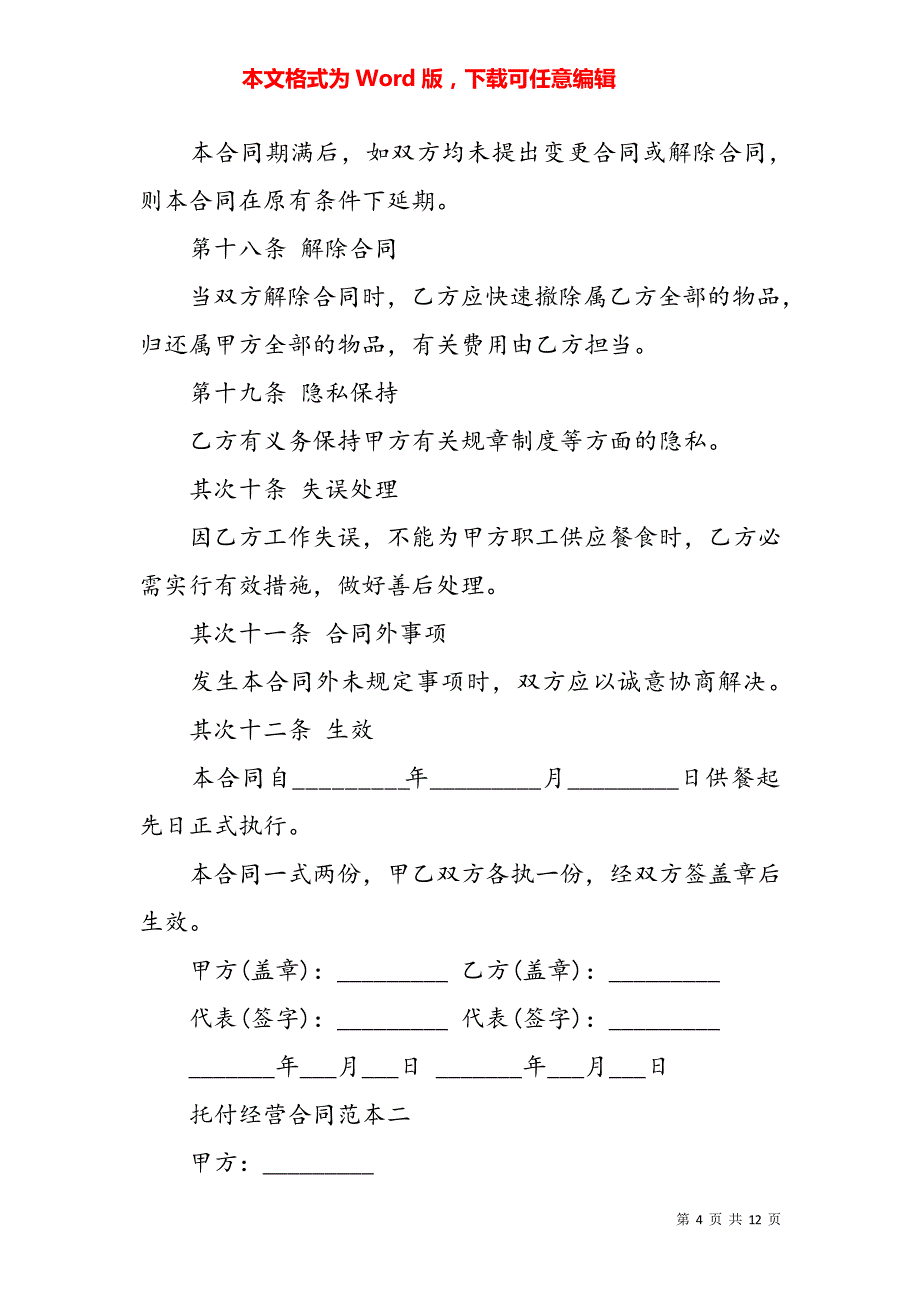 本文格式为 Word 版，下载可任意编辑
本合同期满后，如双方均未提出变更合同或解除合同，
则本合同在原有条件下延期。
第十八条 解除合同
当双方解除合同时，乙方应快速撤除属乙方全部的物品，
归还属甲方全部的物品，有关费用由乙方担当。
第十九条 隐私保持
乙方有义务保持甲方有关规章制度等方面的隐私。
其次十条 失误处理
因乙方工作失误，不能为甲方职工供应餐食时，乙方必
需实行有效措施，做好善后处理。
其次十一条 合同外事项
发生本合同外未规定事项时，双方应以诚意协商解决。
其次十二条 生效
本合同自_________年_________月_________日供餐起
先日正式执行。
本合同一式两份，甲乙双方各执一份，经双方签盖章后
生效。
甲方(盖章)：_________ 乙方(盖章)：_________
代表(签字)：_________ 代表(签字)：_________
_______年___月___日 _______年___月___日
托付经营合同范本二
甲方：_________
第 4 页 共 12 页